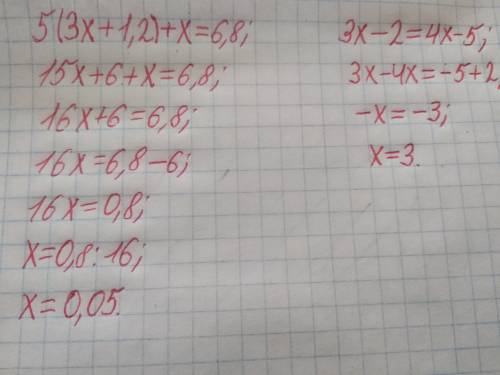 5(3x+1,2)+x=6,8;
15x+6+x=6,8;
16x+6=6,8;
16x=6,8-6;
16x=0,8;
x=0,8:16;
x=0,05.
3x-2=4x-5;
3x-4x=-5+2;
-x=-3;
x=3.